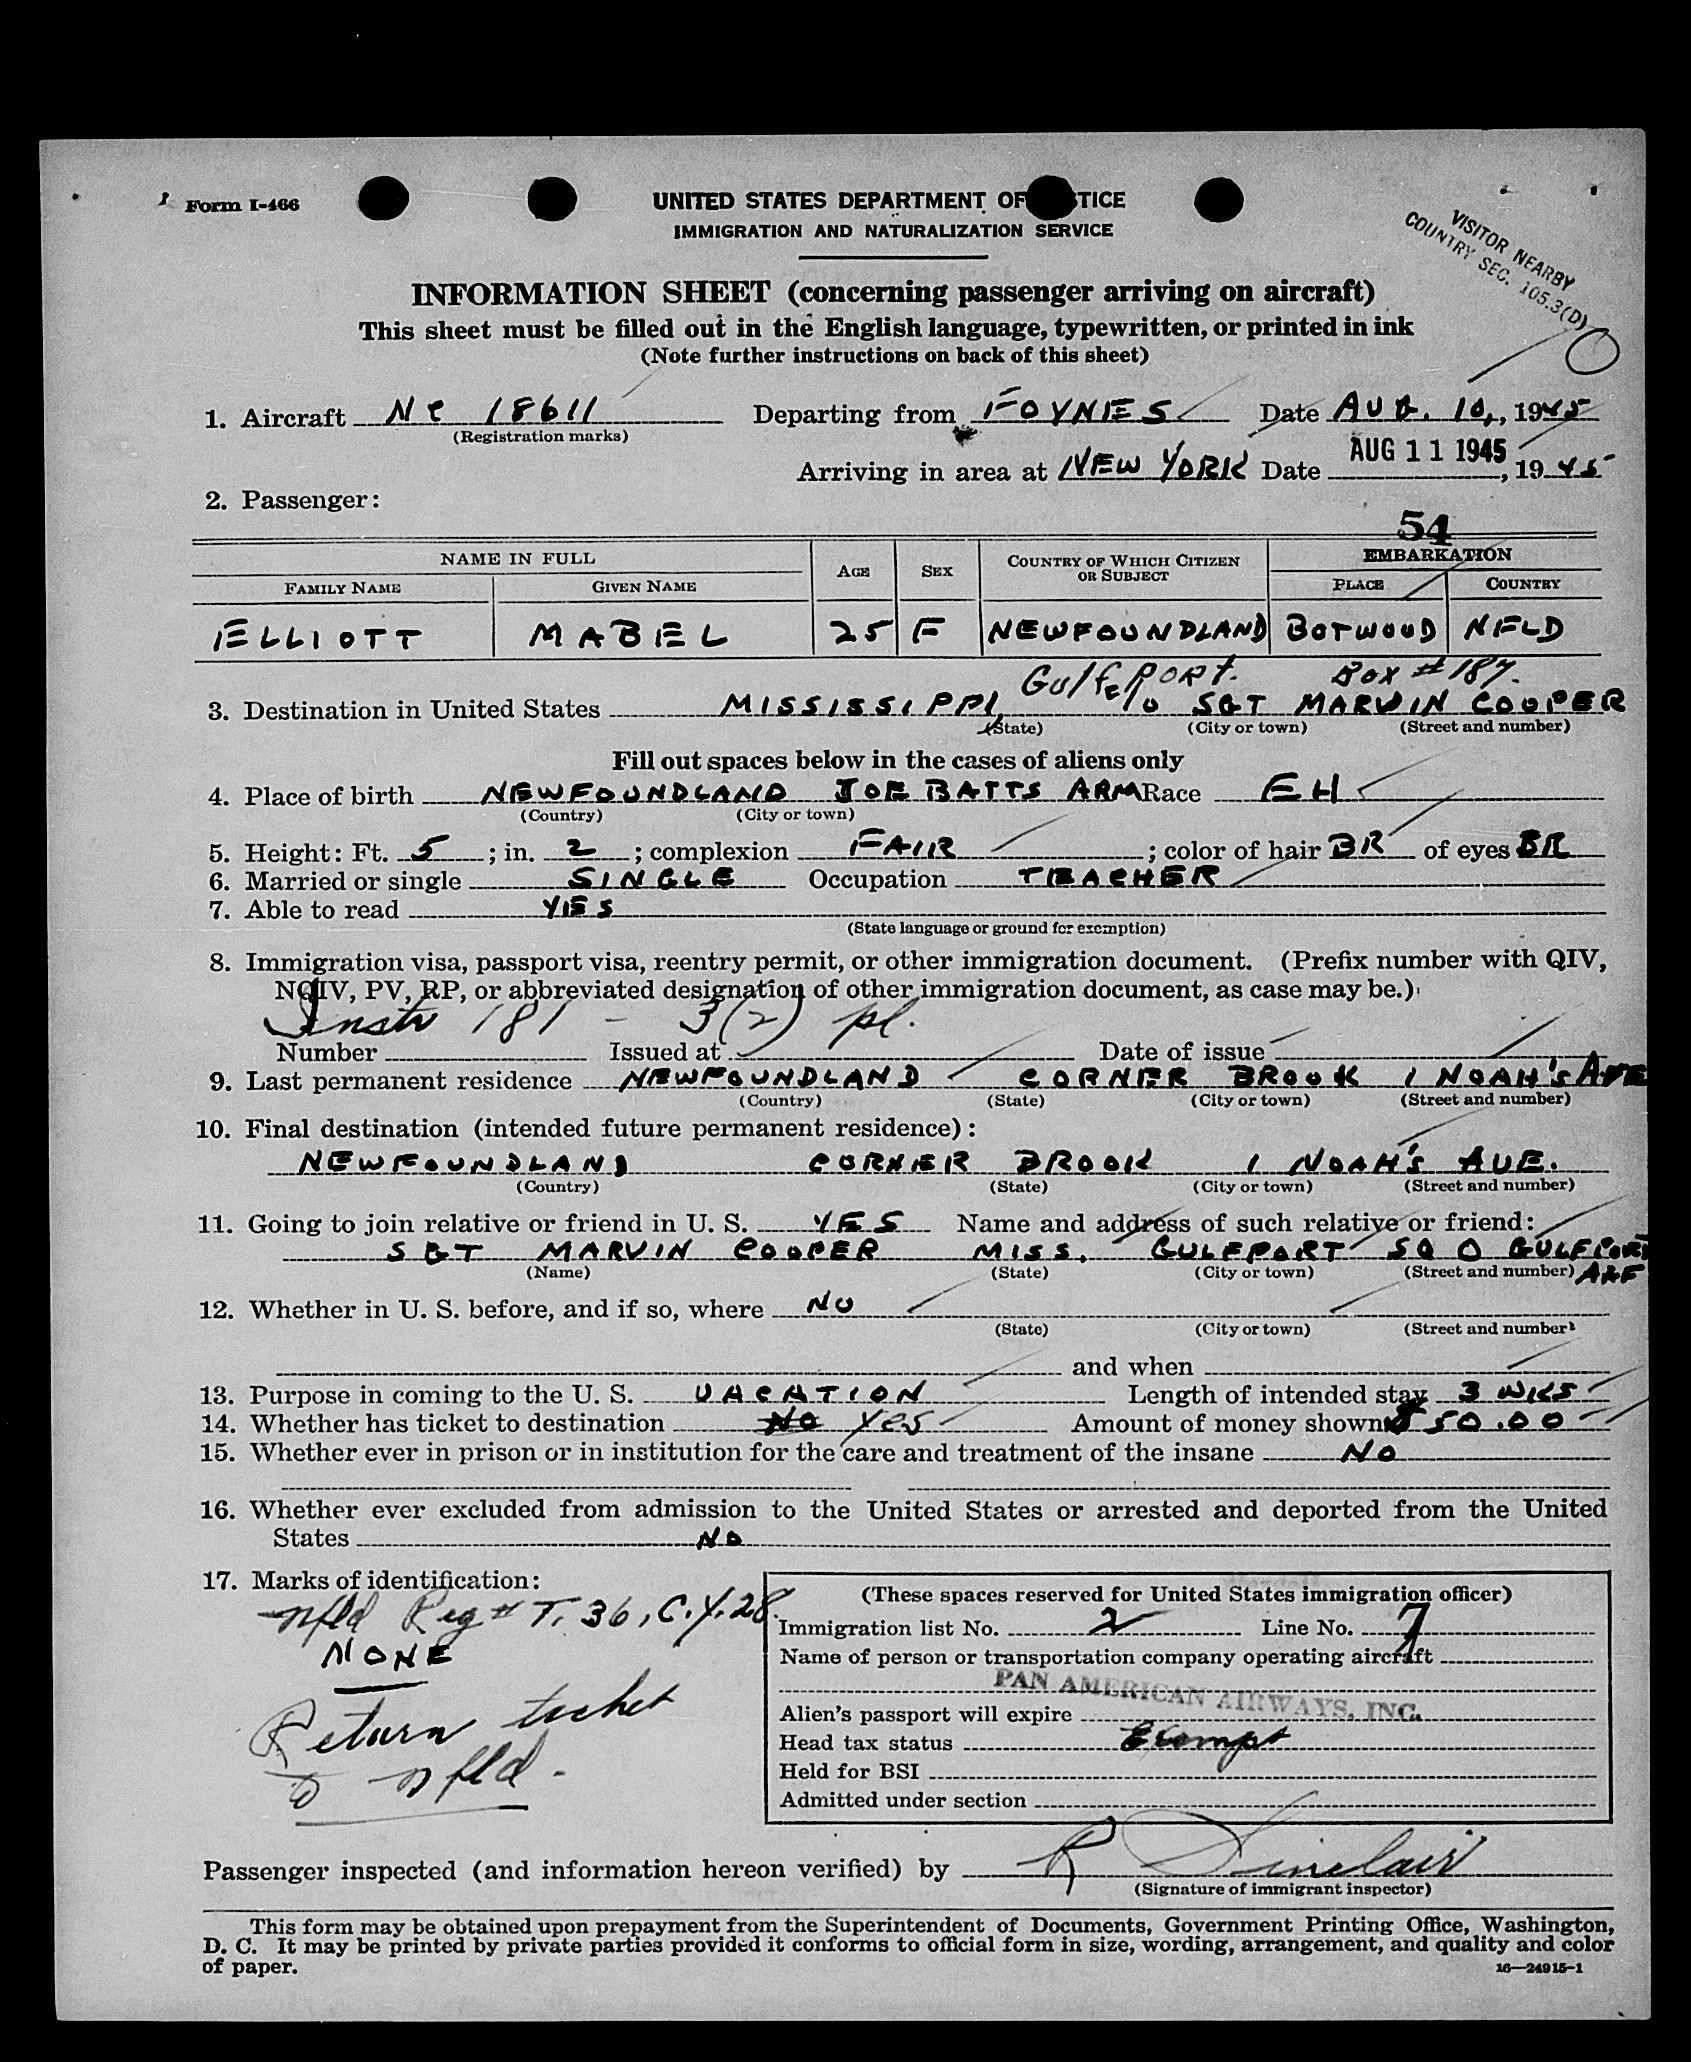 Form I-466
UNITED STATES DEPARTMENT OF TICE
IMMIGRATION AND NATURALIZATION SERVICE
VISITOR NEARBY
COUNTRY SEC. 105.3(D)
INFORMATION SHEET (concerning passenger arriving on aircraft)
This sheet must be filled out in the English language, typewritten, or printed in ink
(Note further instructions on back of this sheet)
1. Aircraft NC 18611 Departing from FOYNES Date AUG. 10, 1945
(Registration marks)
AUG 11 1945
Arriving in area at NEW YORK Date , 1945
2. Passenger:
54
NAME IN FULL AGE SEX COUNTRY OF WHICH CITIZEN OR SUBJECT EMBARKATION
FAMILY NAME GIVEN NAME PLACE COUNTRY
ELLIOTT MABEL 25 F NEWFOUNDLAND BOTWOOD NFLD
Gulfport. Box # 187.
3. Destination in United States MISSISSIPPI, c/o SGT MARVIN COOPER
(State) (City or town) (Street and number)
Fill out spaces below in the cases of aliens only
4. Place of birth NEWFOUNDLAND JOE BATTS ARM Race EH
(Country) (City or town)
5. Height: Ft. 5; in. 2; complexion FAIR; color of hair BR of eyes BR
6. Married or single SINGLE Occupation TEACHER
7. Able to read YES
(State language or ground for exemption)
8. Immigration visa, passport visa, reentry permit, or other immigration document. (Prefix number with QIV,
NQIV, PV, RP, or abbreviated designation of other immigration document, as case may be.)
Instr 181 - 3(2) pl.
Number Issued at Date of issue
9. Last permanent residence NEWFOUNDLAND CORNER BROOK 1 NOAH'S AVE
(Country) (State) (City or town) (Street and number)
10. Final destination (intended future permanent residence):
NEWFOUNDLAND CORNER BROOK 1 NOAH'S AVE.
(Country) (State) (City or town) (Street and number)
11. Going to join relative or friend in U. S. YES Name and address of such relative or friend:
SGT MARVIN COOPER MISS. GULFPORT SQ O GULFPORT
(Name) (State) (City or town) (Street and number) AAF
12. Whether in U. S. before, and if so, where NO
(State) (City or town) (Street and number)
and when
13. Purpose in coming to the U. S. VACATION Length of intended stay 3 WKS
14. Whether has ticket to destination NO Yes Amount of money shown $50.00
15. Whether ever in prison or in institution for the care and treatment of the insane NO
16. Whether ever excluded from admission to the United States or arrested and deported from the United
States NO
17. Marks of identification:
Nfld Reg # T. 36, C.Y. 28.
NONE
Return ticket
to Nfld.
(These spaces reserved for United States immigration officer)
Immigration list No. 2 Line No. 7
Name of person or transportation company operating aircraft
PAN AMERICAN AIRWAYS, INC.
Alien's passport will expire
Head tax status Exempt
Held for BSI
Admitted under section
Passenger inspected (and information hereon verified) by R Sinclair
(Signature of immigrant inspector)
This form may be obtained upon prepayment from the Superintendent of Documents, Government Printing Office, Washington,
D. C. It may be printed by private parties provided it conforms to official form in size, wording, arrangement, and quality and color
of paper.
16—24915-1